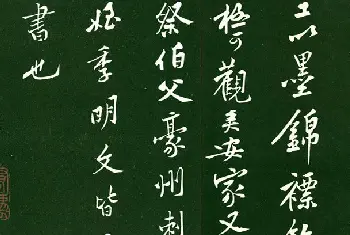 以墨錦褾
極可觀長安家又
祭伯父豪州刺
姪季明文皆
書也